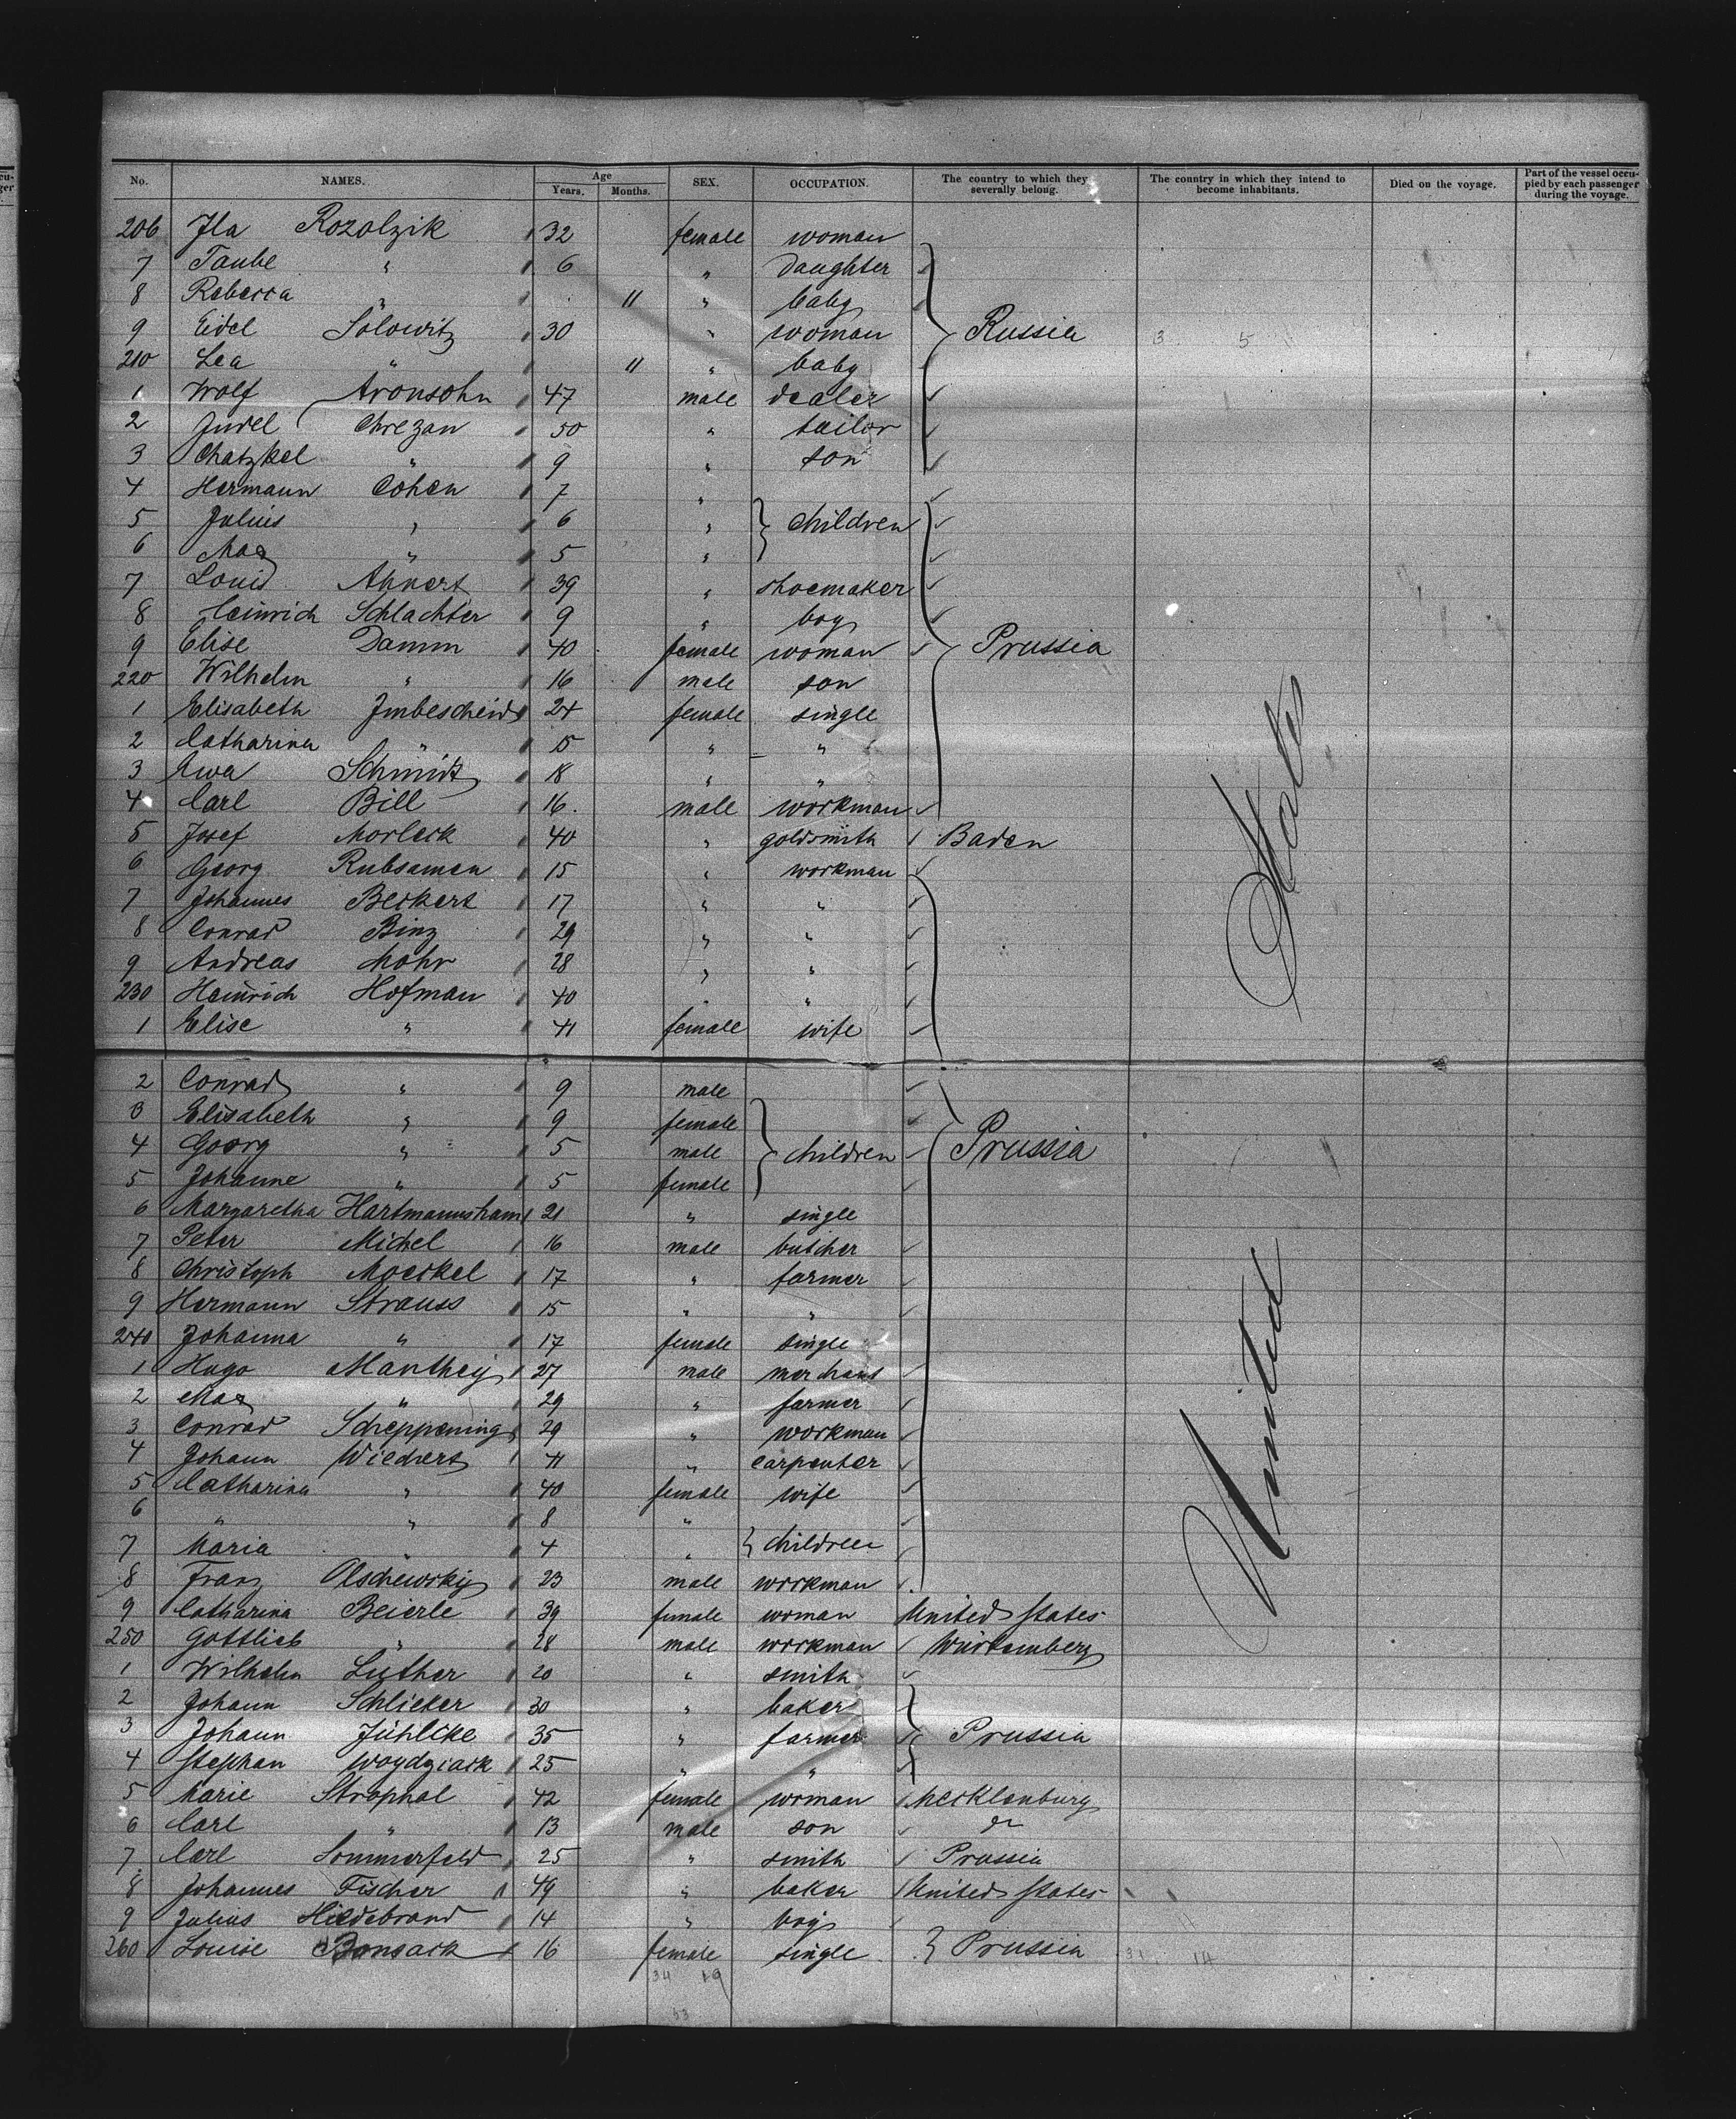 No. NAMES. Age Years. Months. SEX. OCCUPATION. The country to which they severally belong. The country in which they intend to become inhabitants. Died on the voyage. Part of the vessel occupied by each passenger during the voyage.
206 Ila Rozolzik 32 female woman
7 Taube " 6 " daughter
8 Rebecca " 11 " baby
9 Eidel Solowitz 30 " woman Russia
210 Lea " 11 " baby
1 Wolf Aronsohn 47 male dealer
2 Judel Chrezan 50 " tailor
3 Chatzkel " 9 " son
4 Hermann Cohen 7 "
5 Julius " 6 " children
6 Max " 5 "
7 Louis Ahnert 39 " shoemaker
8 Heinrich Schlachter 9 " boy
9 Elise Damm 40 female woman Prussia
220 Wilhelm " 16 male son
1 Elisabeth Imbescheid 24 female single
2 Catharina " 15 " "
3 Ewa Schmidt 18 " "
4 Carl Bill 16 male workman
5 Josef Morleck 40 " goldsmith Baden
6 Georg Rubsamen 15 " workman
7 Johannes Beckert 17 " "
8 Conrad Binz 29 " "
9 Andreas Mohr 28 " "
230 Heinrich Hofman 40 " "
1 Elise " 41 female wife
2 Conrad " 9 male
3 Elisabeth " 9 female
4 Georg " 5 male children Prussia
5 Johanne " 5 female
6 Margaretha Hartmannsham 21 " single
7 Peter Michel 16 male butcher
8 Christoph Moeckel 17 " farmer
9 Hermann Strauss 15 " "
240 Johanna " 17 female single
1 Hugo Manthey 27 male merchant
2 Max " 29 " farmer
3 Conrad Scheppening 29 " workman
4 Johann Wiechert 41 " carpenter
5 Catharina " 40 female wife
6 " " 8 "
7 Maria " 4 " children
8 Franz Olschewsky 23 male workman
9 Catharina Beierle 39 female woman United States
250 Gottlieb " 28 male workman Würtemberg
1 Wilhelm Luther 20 " smith
2 Johann Schlieker 30 " baker
3 Johann Jühlcke 35 " farmer Prussia
4 Stephan Woydziack 25 " "
5 Marie Strophal 42 female woman Mecklenburg
6 Carl " 13 male son do
7 Carl Sommerfeld 25 " smith Prussia
8 Johannes Fischer 49 " baker United States
9 Julius Hildebrand 14 " boy
260 Louise Bonsack 16 female single Prussia
34 19
53
United States